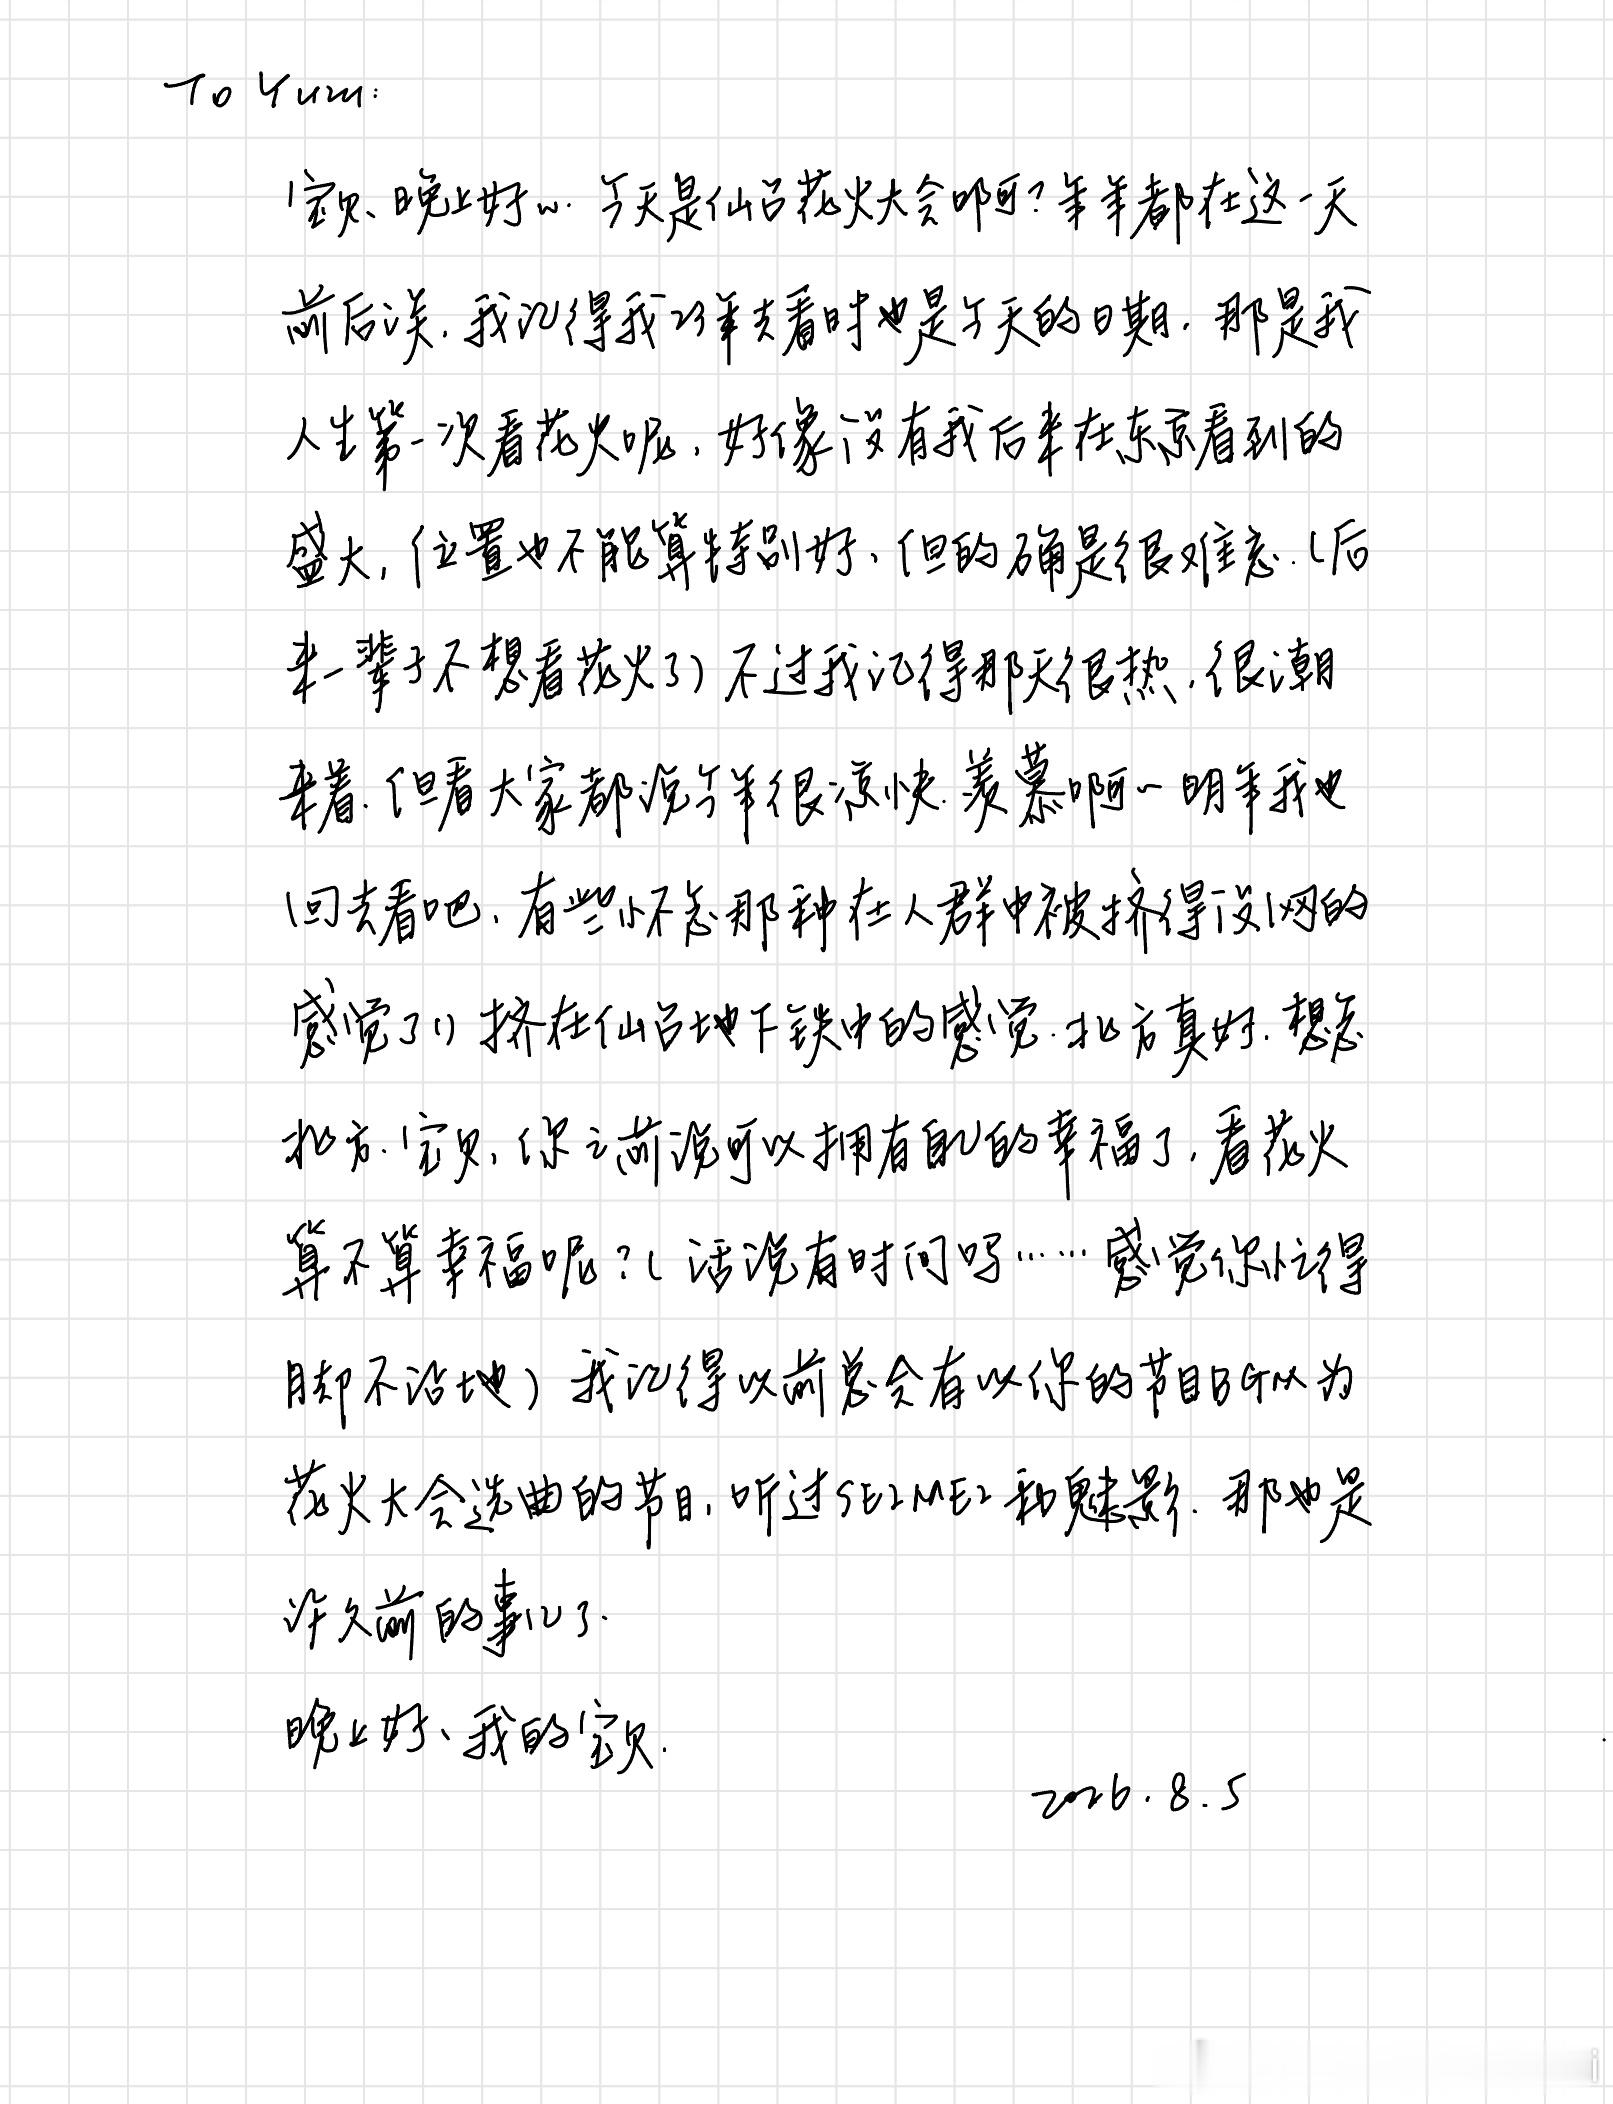 To Yuzu:
宝贝、晚上好w. 今天是仙台花火大会啊?年年都在这一天
前后诶.我记得我23年去看时也是今天的日期.那是我
人生第一次看花火呢,好像没有我后来在东京看到的
盛大,位置也不能算特别好、但的确是很难忘.(后
来一辈子不想看花火了)不过我记得那天很热.很潮
来着.但看大家都说今年很凉快.羡慕啊~明年我也
回去看吧、有些怀念那种在人群中被挤得没网的
感觉了()挤在仙台地下铁中的感觉.北方真好.想念
北方.宝贝,你之前说可以拥有自己的幸福了,看花火
算不算幸福呢?(话说有时间吗……感觉你忙得
脚不沾地)我记得以前总会有以你的节目BGM为
花火大会选曲的节目,听过SEIMEI和魅影.那也是
许久前的事儿了.
晚上好、我的宝贝.
2026.8.5